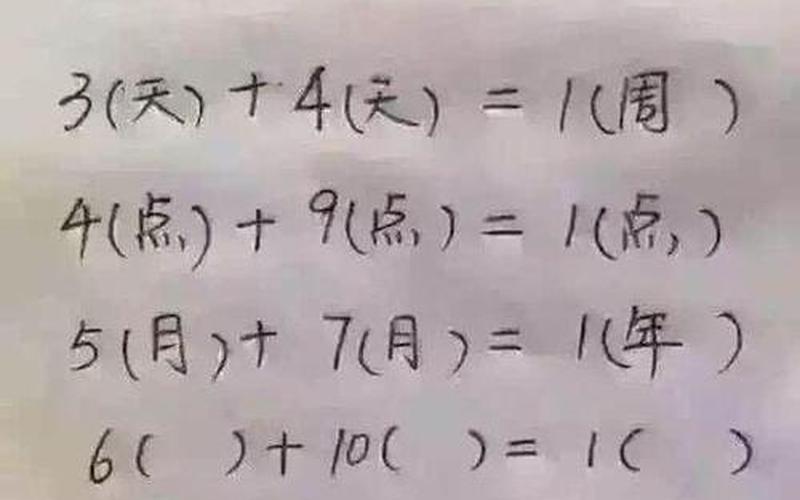 3(天)+4(天)=1(周 )
4(点)+9(点)=1(点)
5(月)+7(月)=1(年 )
6( )+10( )=1( )